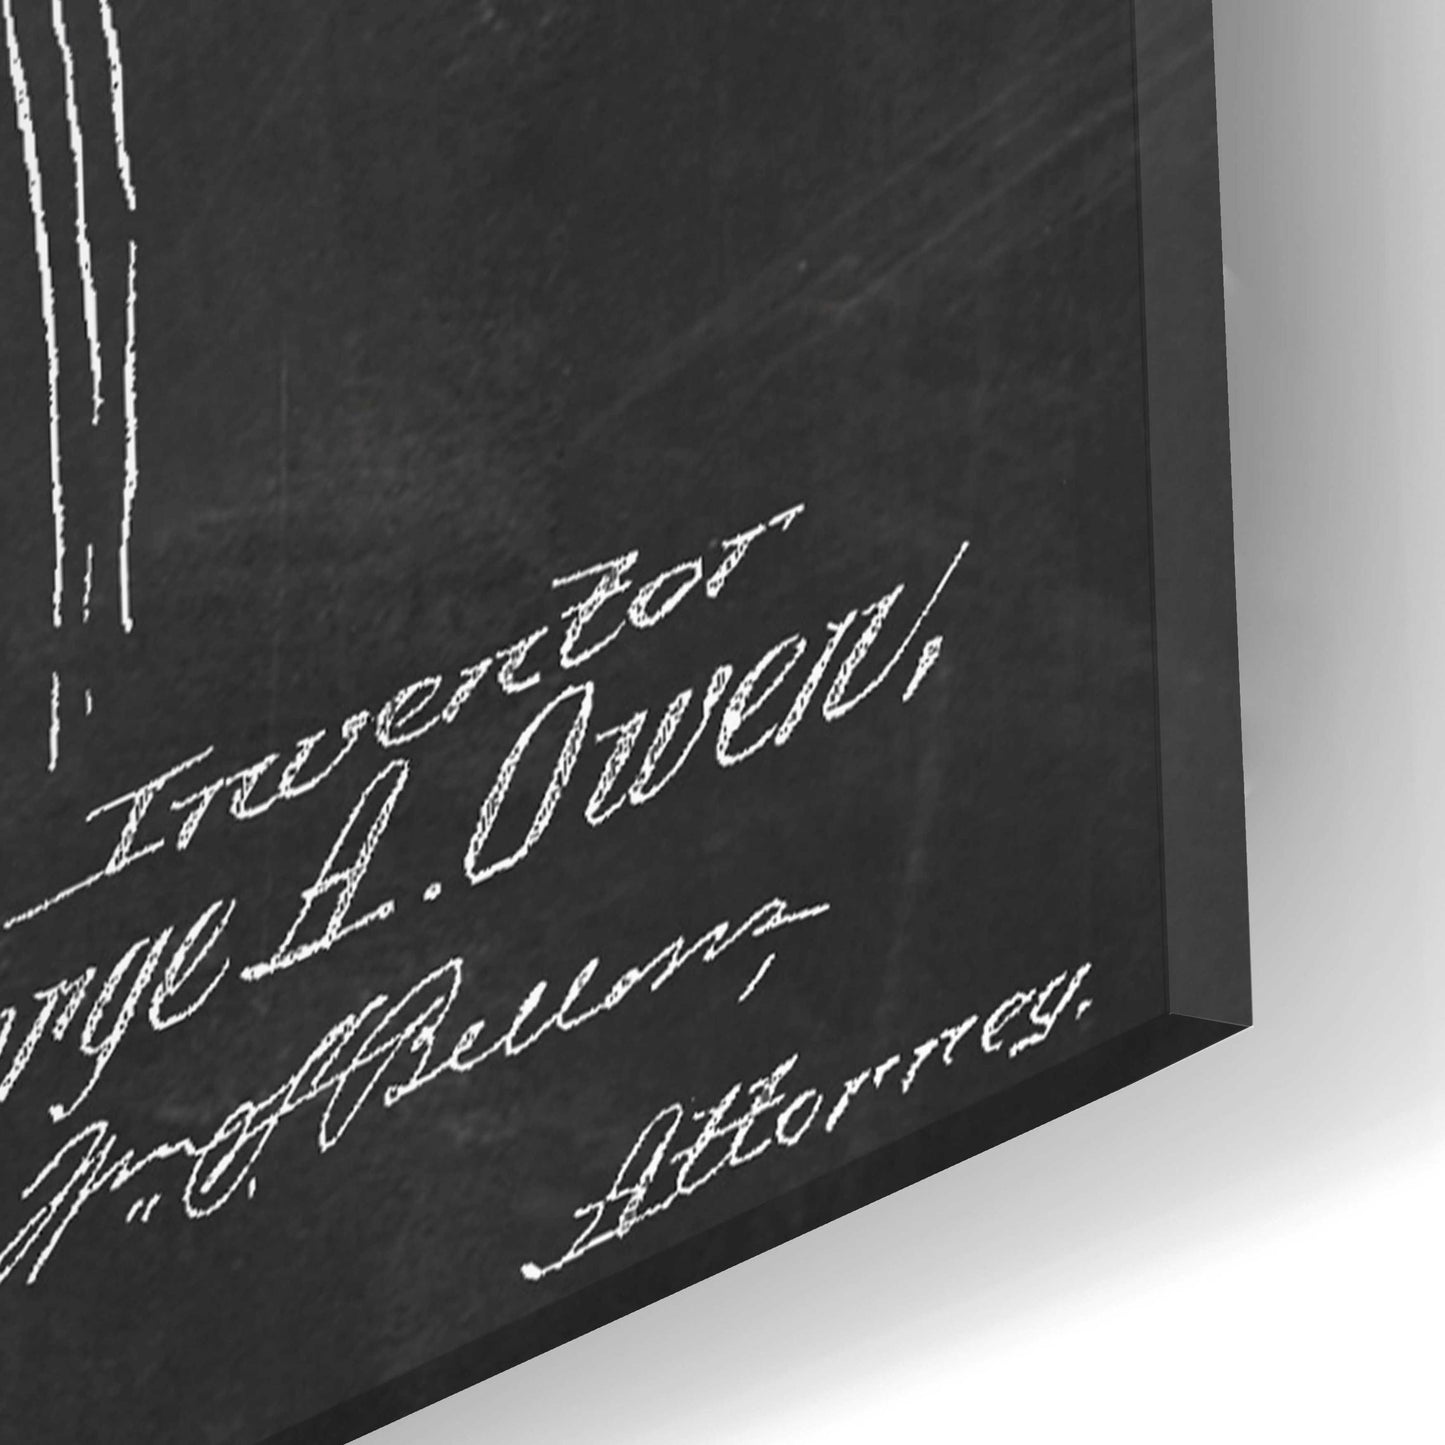 Inventor
orge A. Owen,
Wm. F. Bellows,
Attorney.